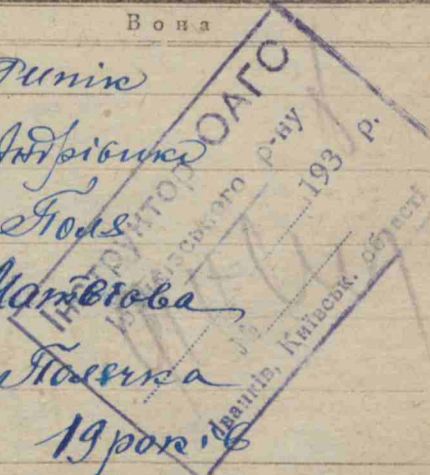 Вона
Рипік
Андрієвка
Поля
Матвіова
Полячка
19 років
Інструктор ОАГС
р-ну
193 р.
№
Іванків, Київськ. області